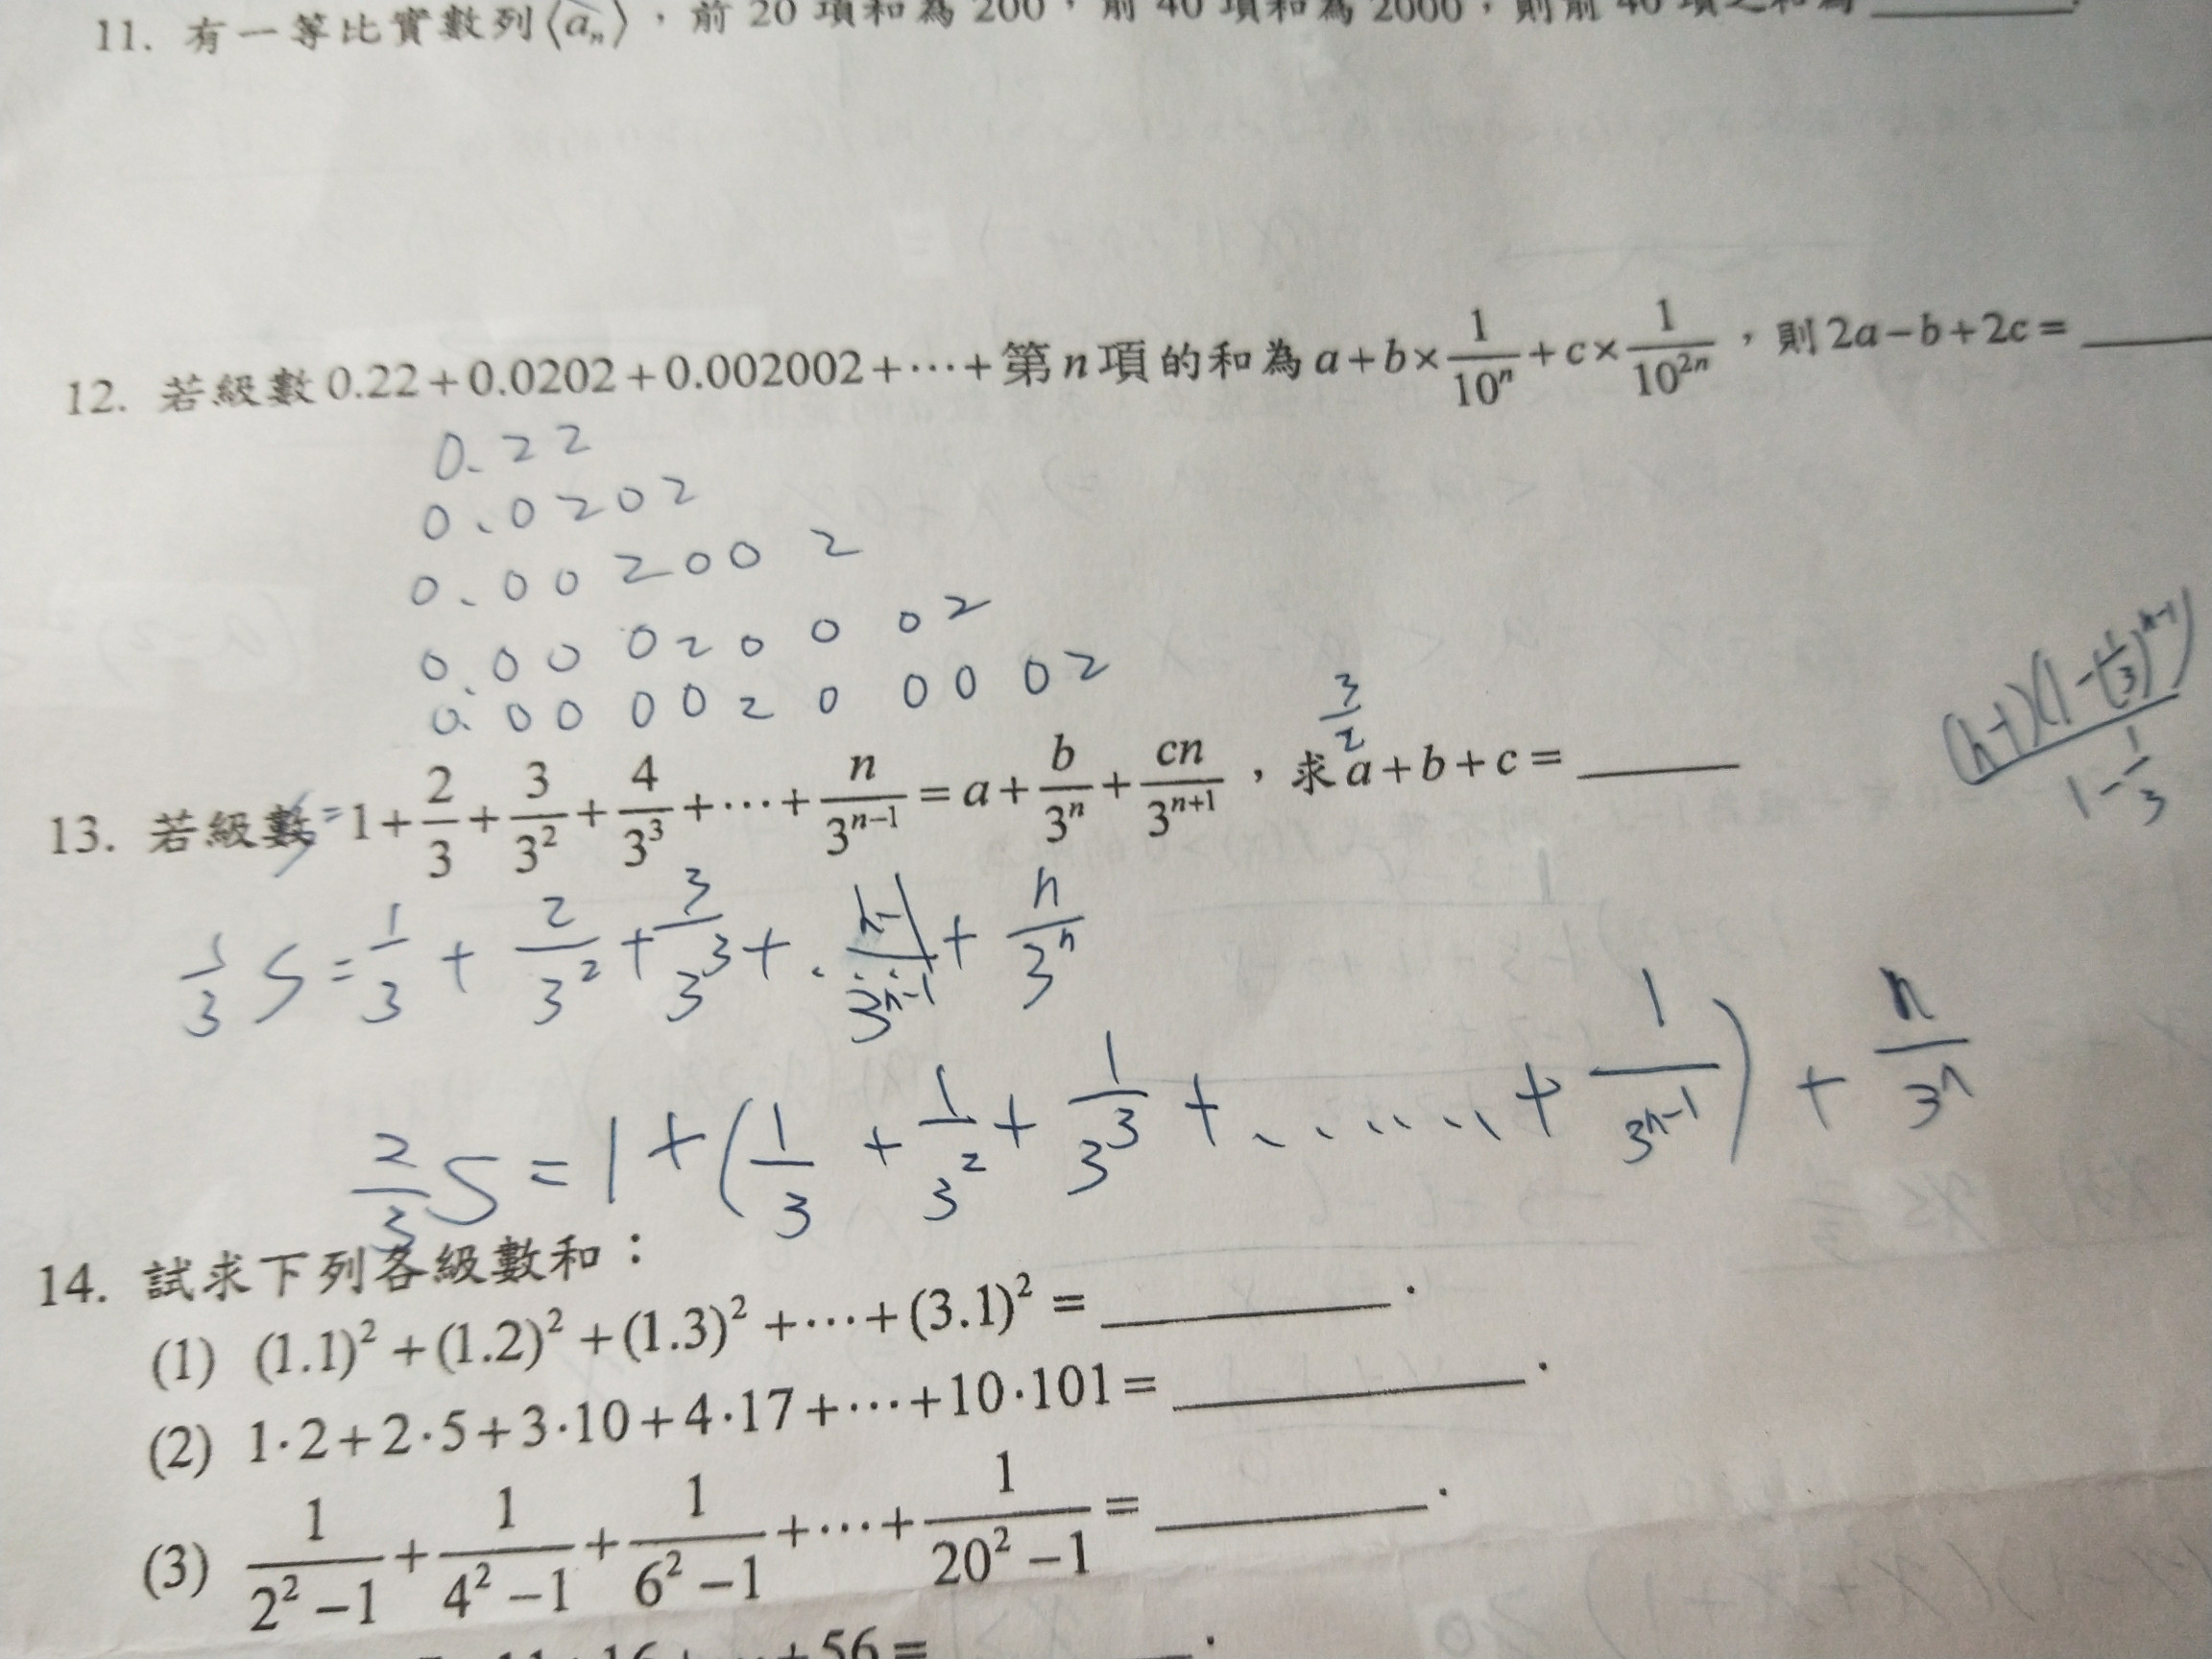 11. 有一等比實數列⟨aₙ⟩，前 20 項和為 200，前 40 項和為 2000，則前
12. 若級數 0.22+0.0202+0.002002+⋯+第 n 項的和為 a+b×1/10ⁿ+c×1/10²ⁿ，則 2a−b+2c= ____
0.22
0.0202
0.002002
0.00020002
0.0000200002
3/2
13. 若級數 S= 1+2/3+3/3²+4/3³+⋯+n/3ⁿ⁻¹=a+b/3ⁿ+cn/3ⁿ⁺¹，求 a+b+c= ____
(n-1)(1-(1/3)ⁿ⁻¹)/(1-1/3)
1/3 S = 1/3 + 2/3² + 3/3³ + ... n-1/3ⁿ⁻¹ + n/3ⁿ
2/3 S = 1+(1/3 + 1/3² + 1/3³ + ....... + 1/3ⁿ⁻¹) + n/3ⁿ
14. 試求下列各級數和：
(1) (1.1)²+(1.2)²+(1.3)²+⋯+(3.1)²= ____.
(2) 1·2+2·5+3·10+4·17+⋯+10·101= ____.
(3) 1/(2²−1)+1/(4²−1)+1/(6²−1)+⋯+1/(20²−1)= ____.
+56= ____.